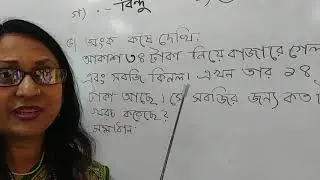 গ) :- বিন্দু
৬) অংক কষে দেখি:
আকাশ ৩৪ টাকা নিয়ে বাজারে গেল
এবং সবজি কিনল। এখন তার ১৪
টাকা আছে। সে সবজির জন্য কত
খরচ করেছে?
সমাধান: